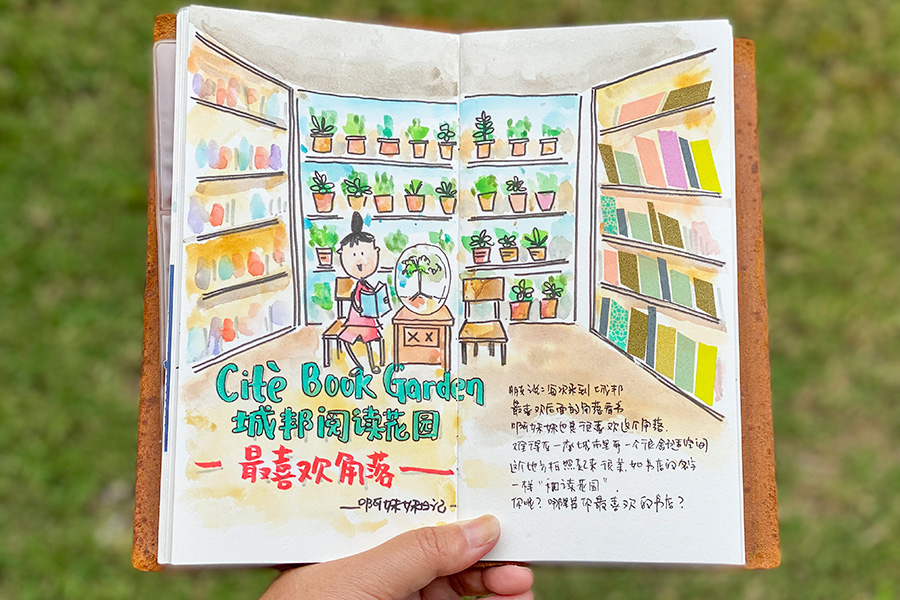 Citè Book Garden
城邦阅读花园
— 最喜欢角落 —
—啊妹妹日记
朋友说：每次来到城邦
最喜欢后面的角落看书
啊妹妹也是很喜欢这个角落.
难得在一座城市里有一个很空间
这地方拍照起来很美,如书店的名字
一样“阅读花园”.
你呢？是你最喜欢的书店？